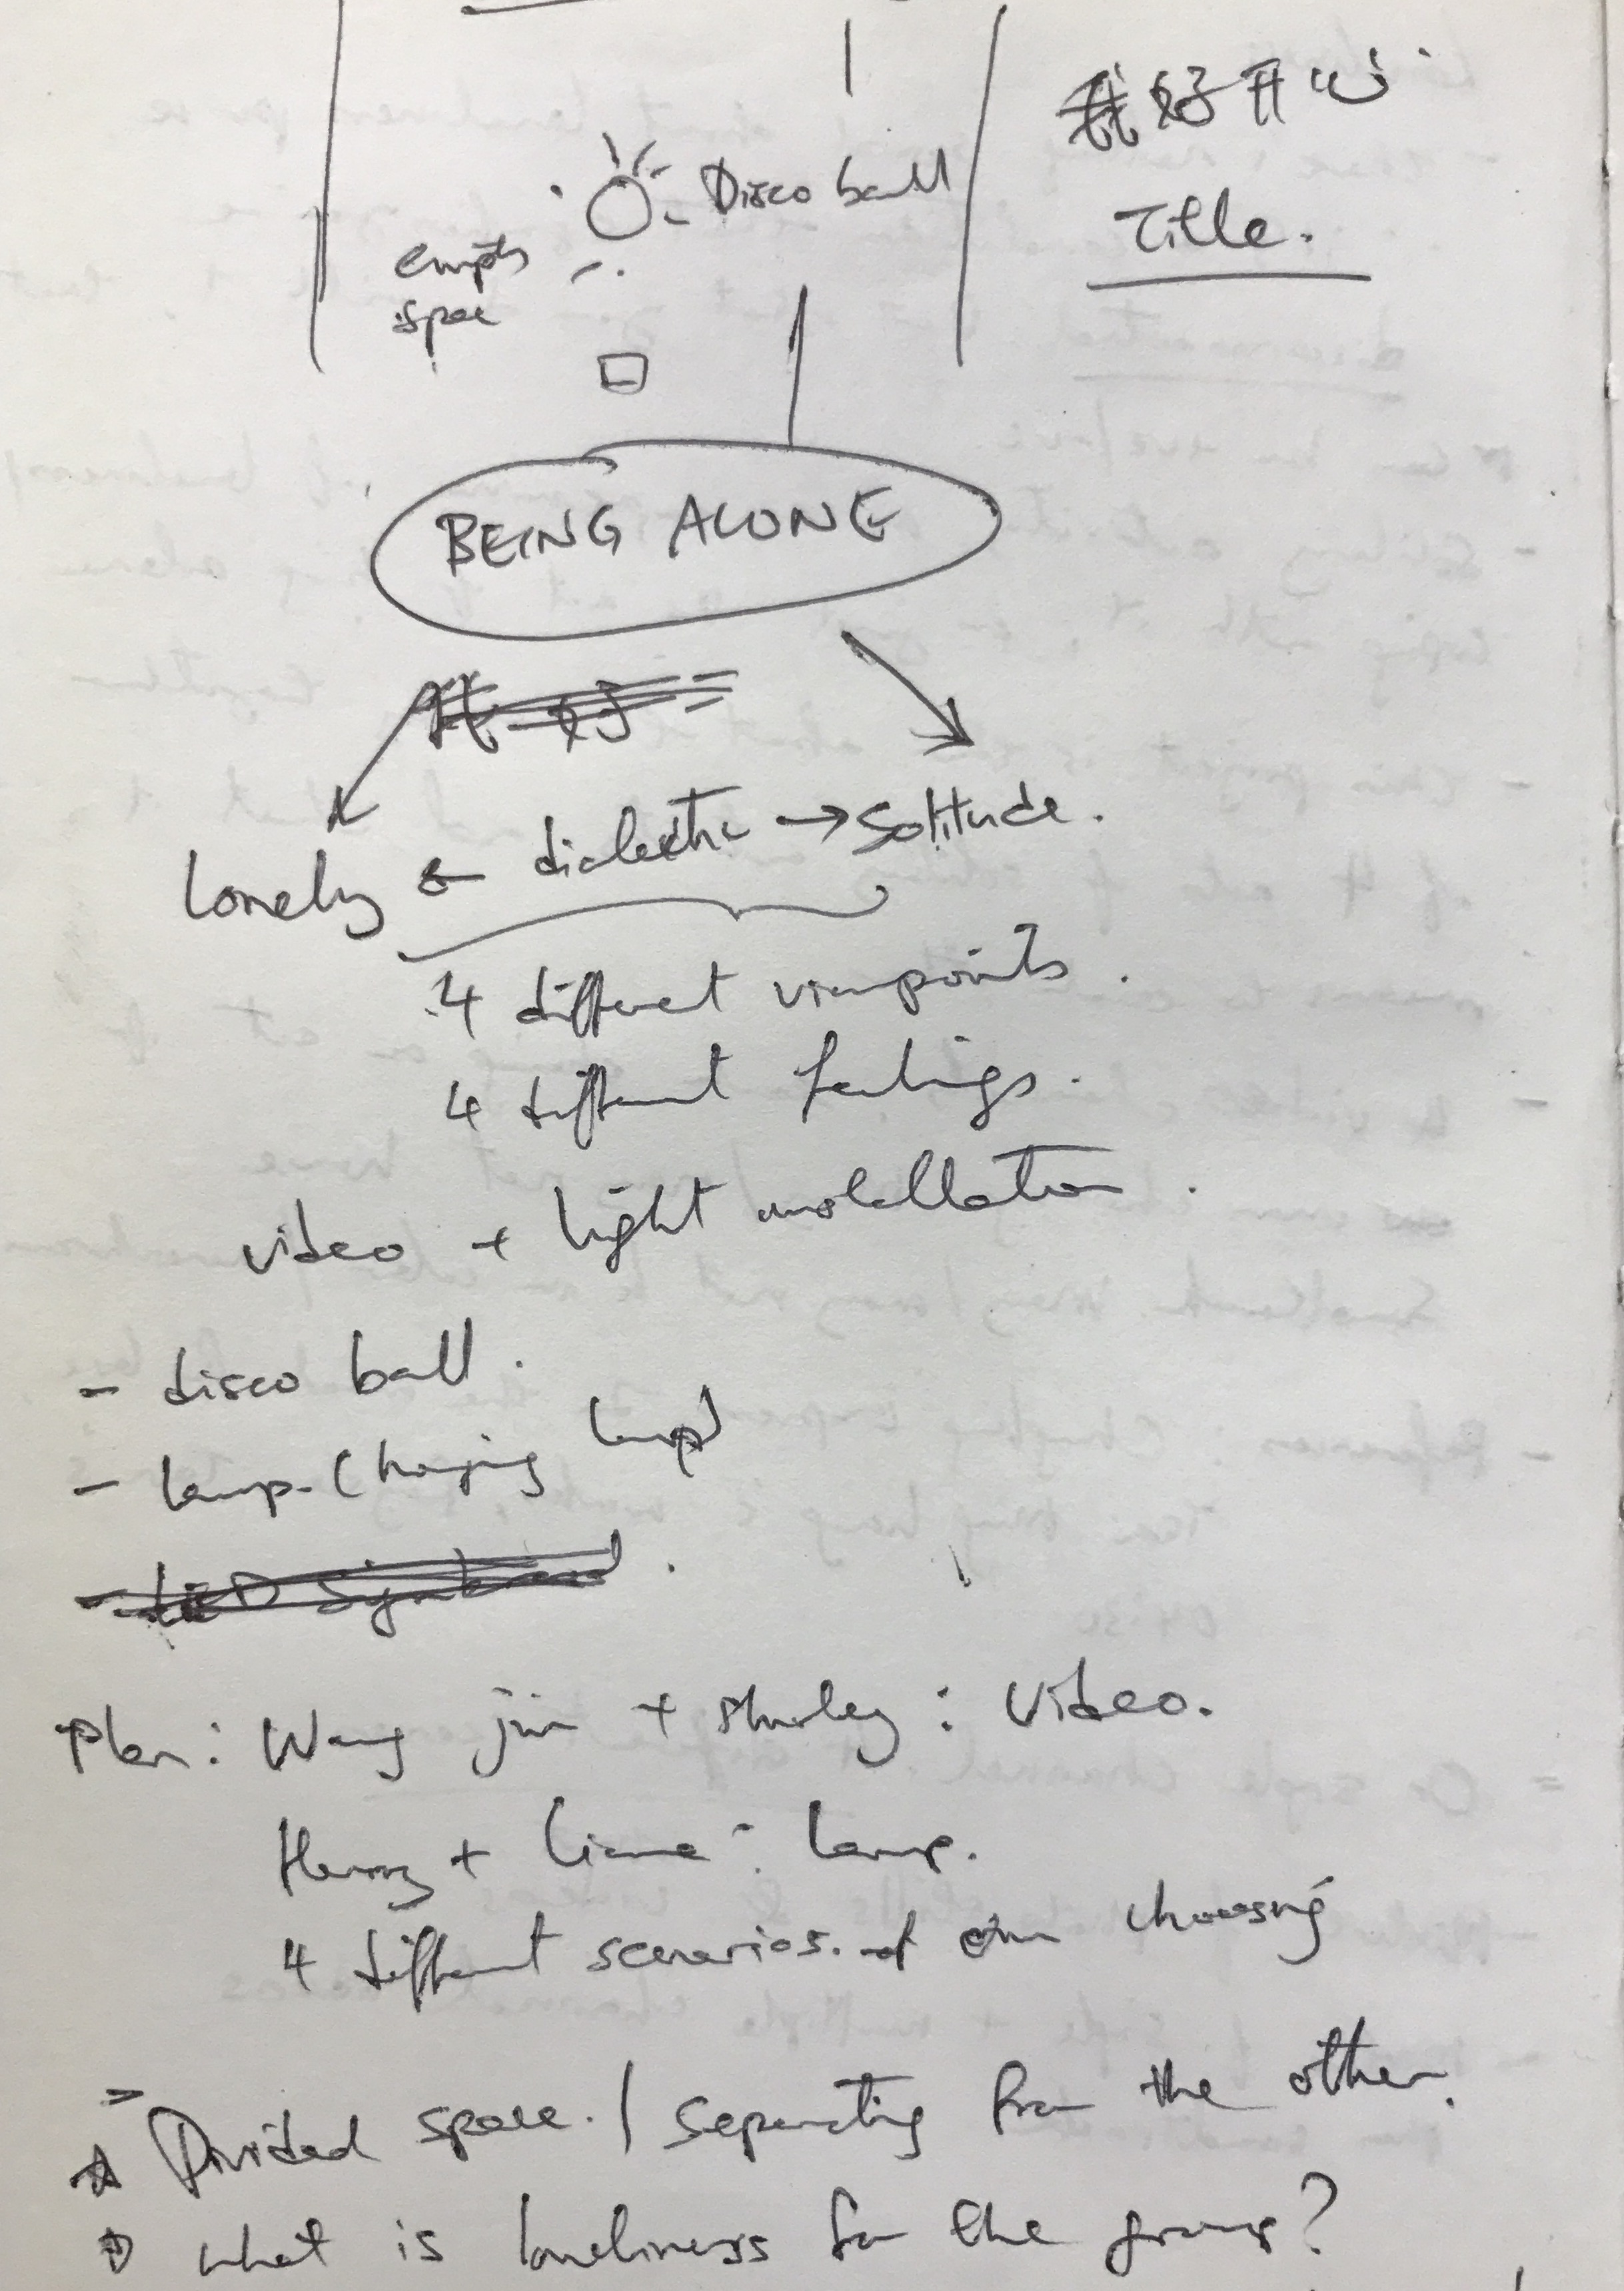 我好开心
Disco ball
Title.
empty
space
BEING ALONE
我好
Lonely ← dialectic → Solitude.
4 different viewpoints.
4 different feelings.
video + light installation.
- disco ball.
- lamp. (hanging lamp)
- LED
Plan: Wang jin + Shirley: Video.
Henry + : lamp.
4 different scenarios. of own choosing
Divided space. / Separating from the other.
what is loneliness for the group?